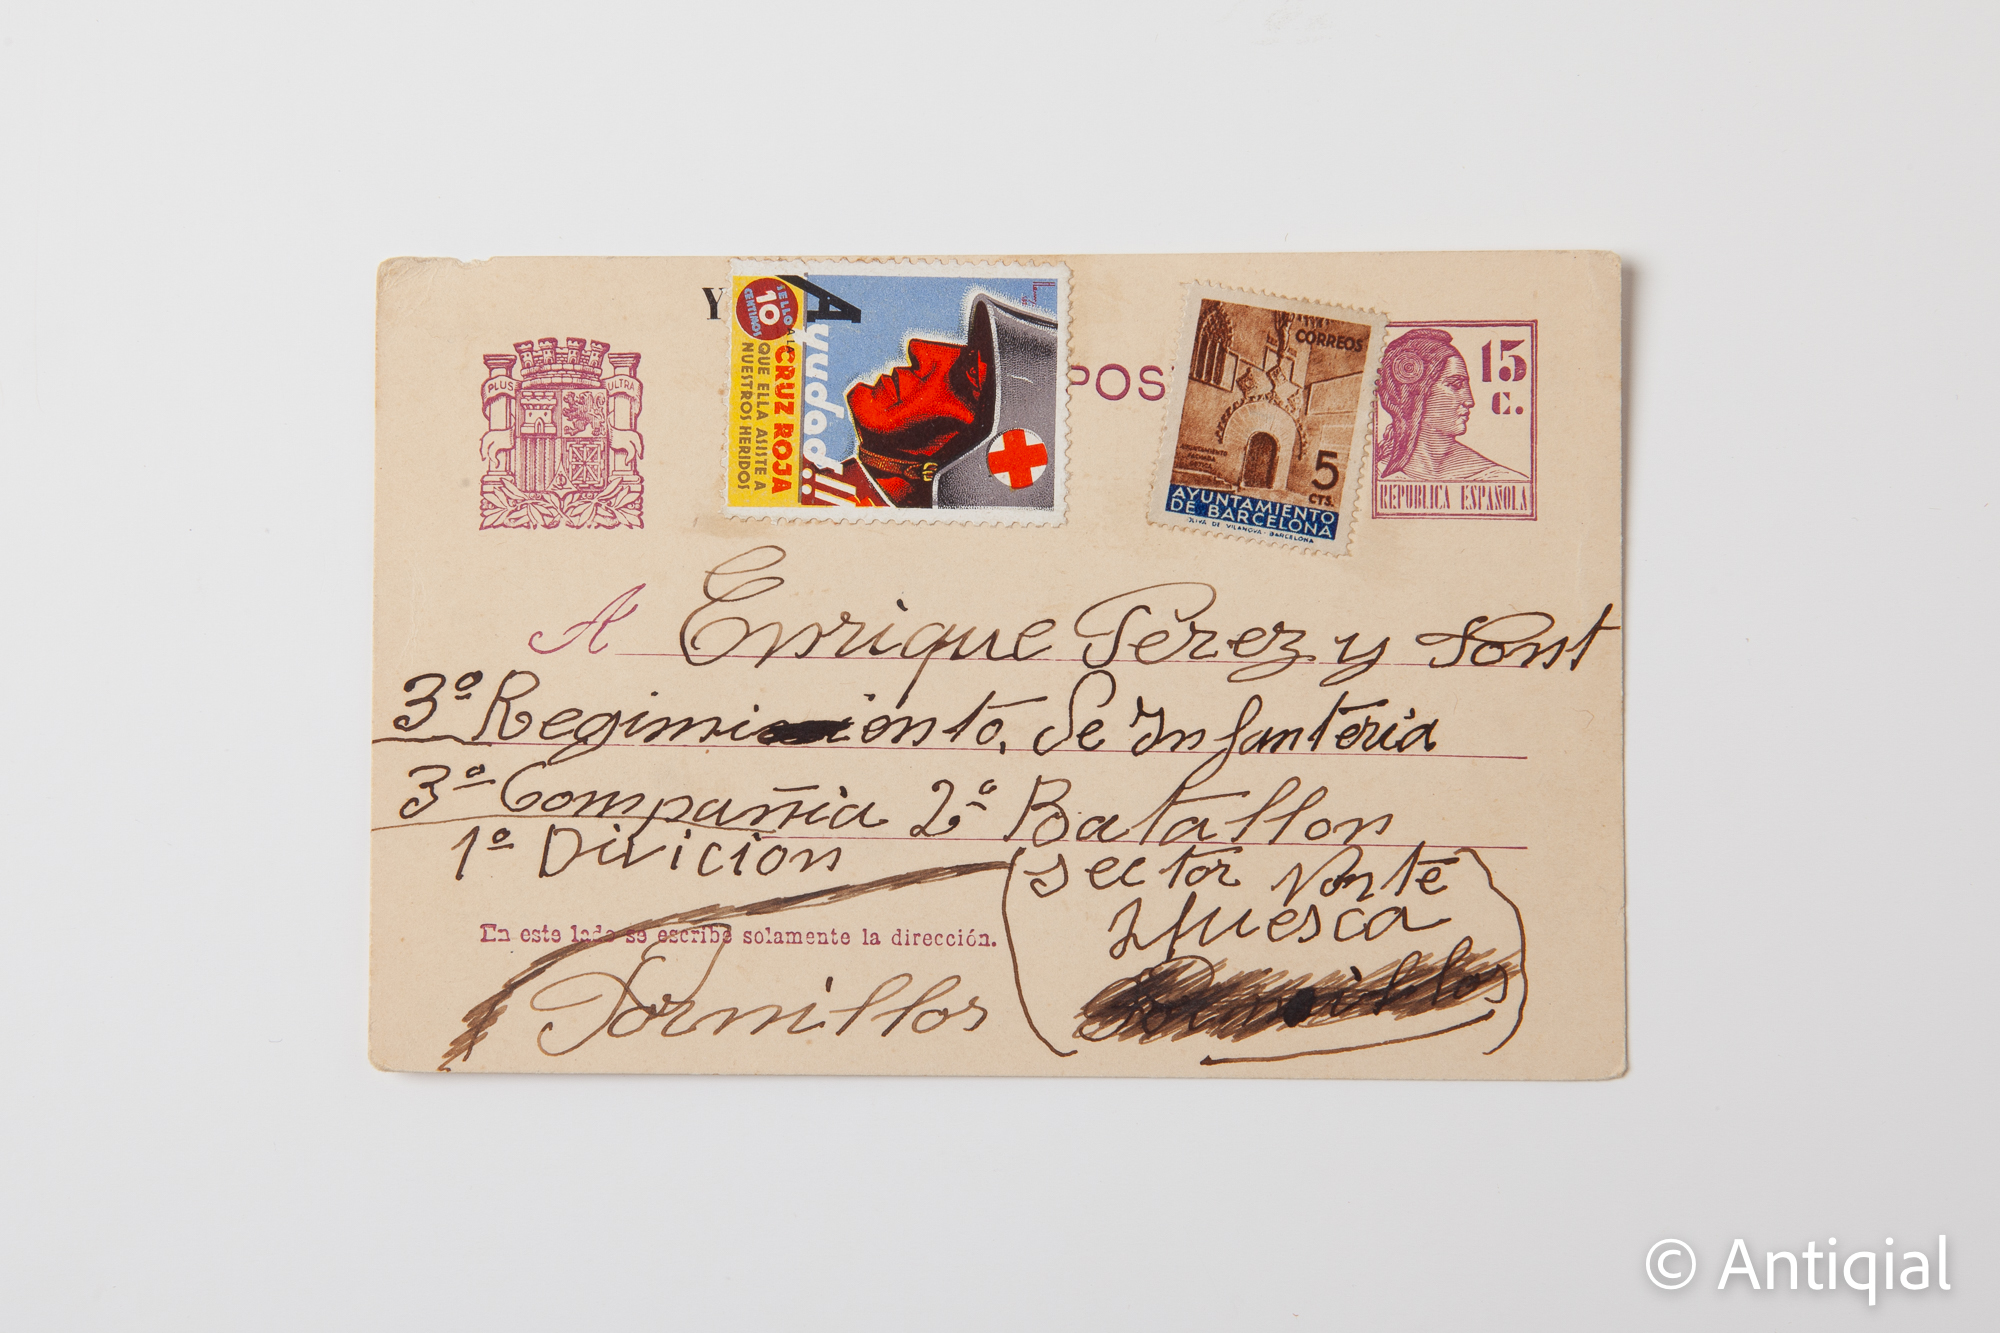 Y
POS
SELLO 10 CENTIMOS
A LA CRUZ ROJA
QUE ELLA ASISTE A
NUESTROS HERIDOS
CORREOS
5
CTS.
AYUNTAMIENTO
DE BARCELONA
OLIVA DE VILANOVA - BARCELONA
15
c.
REPUBLICA ESPAÑOLA
PLUS ULTRA
A Enrique Pérez y Font
3º Regimiento, de Infanteria
3ª Compañia 2º Batallon
1ª Divicion
(sector Norte
Huesca
En este lado se escribe solamente la dirección.
Tornillos
© Antiqial